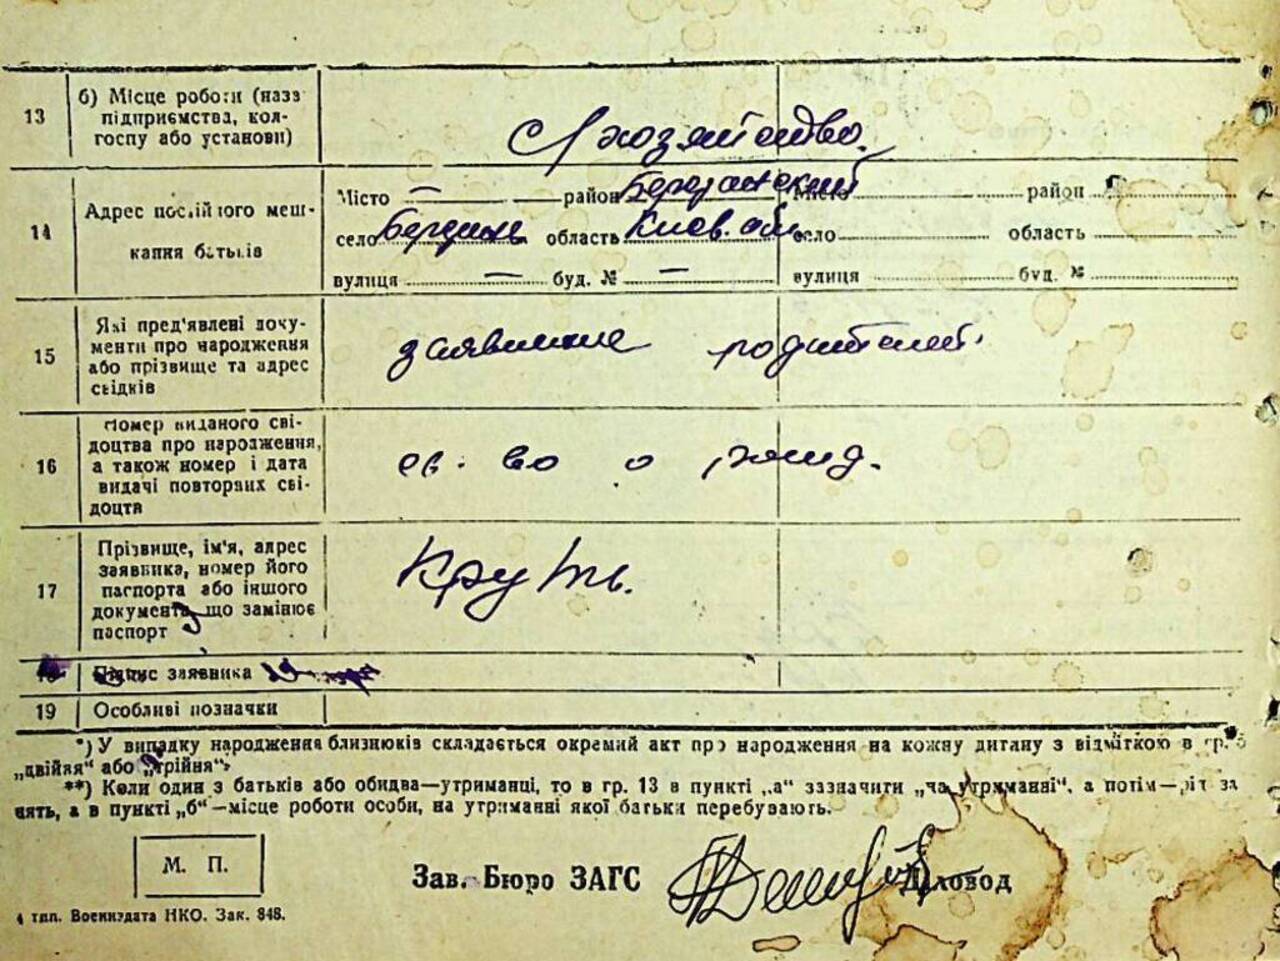 13
б) Місце роботи (назв
підприємства, кол-
госпу або установи)
С/хозяйство.
14
Адрес постійного меш-
кання батьків
Місто — район Березанский Місто район
село Бердинь область Киев. обл. село область
вулиця — буд. № — вулиця буд. №
15
Які пред'явлені доку-
менти про народження
або прізвище та адрес
свідків
заявление родителей.
16
Номер виданого сві-
доцтва про народження,
а також номер і дата
видачі повторних сві-
доцтв
св. во о рожд.
17
Прізвище, ім'я, адрес
заявника, номер його
паспорта або іншого
документа, що замінює
паспорт
Круть.
18 Підпис заявника
19 Особливі позначки
*) У випадку народження близнюків складається окремий акт про народження на кожну дитину з відміткою в гр. 5
„двійня“ або „трійня“.
**) Коли один з батьків або обидва—утриманці, то в гр. 13 в пункті „а“ зазначити „на утриманні“, а потім—рід за
нять, а в пункті „б“—місце роботи особи, на утриманні якої батьки перебувають.
М. П.
Зав. Бюро ЗАГС Діловод
4 тип. Воениздата НКО. Зак. 848.